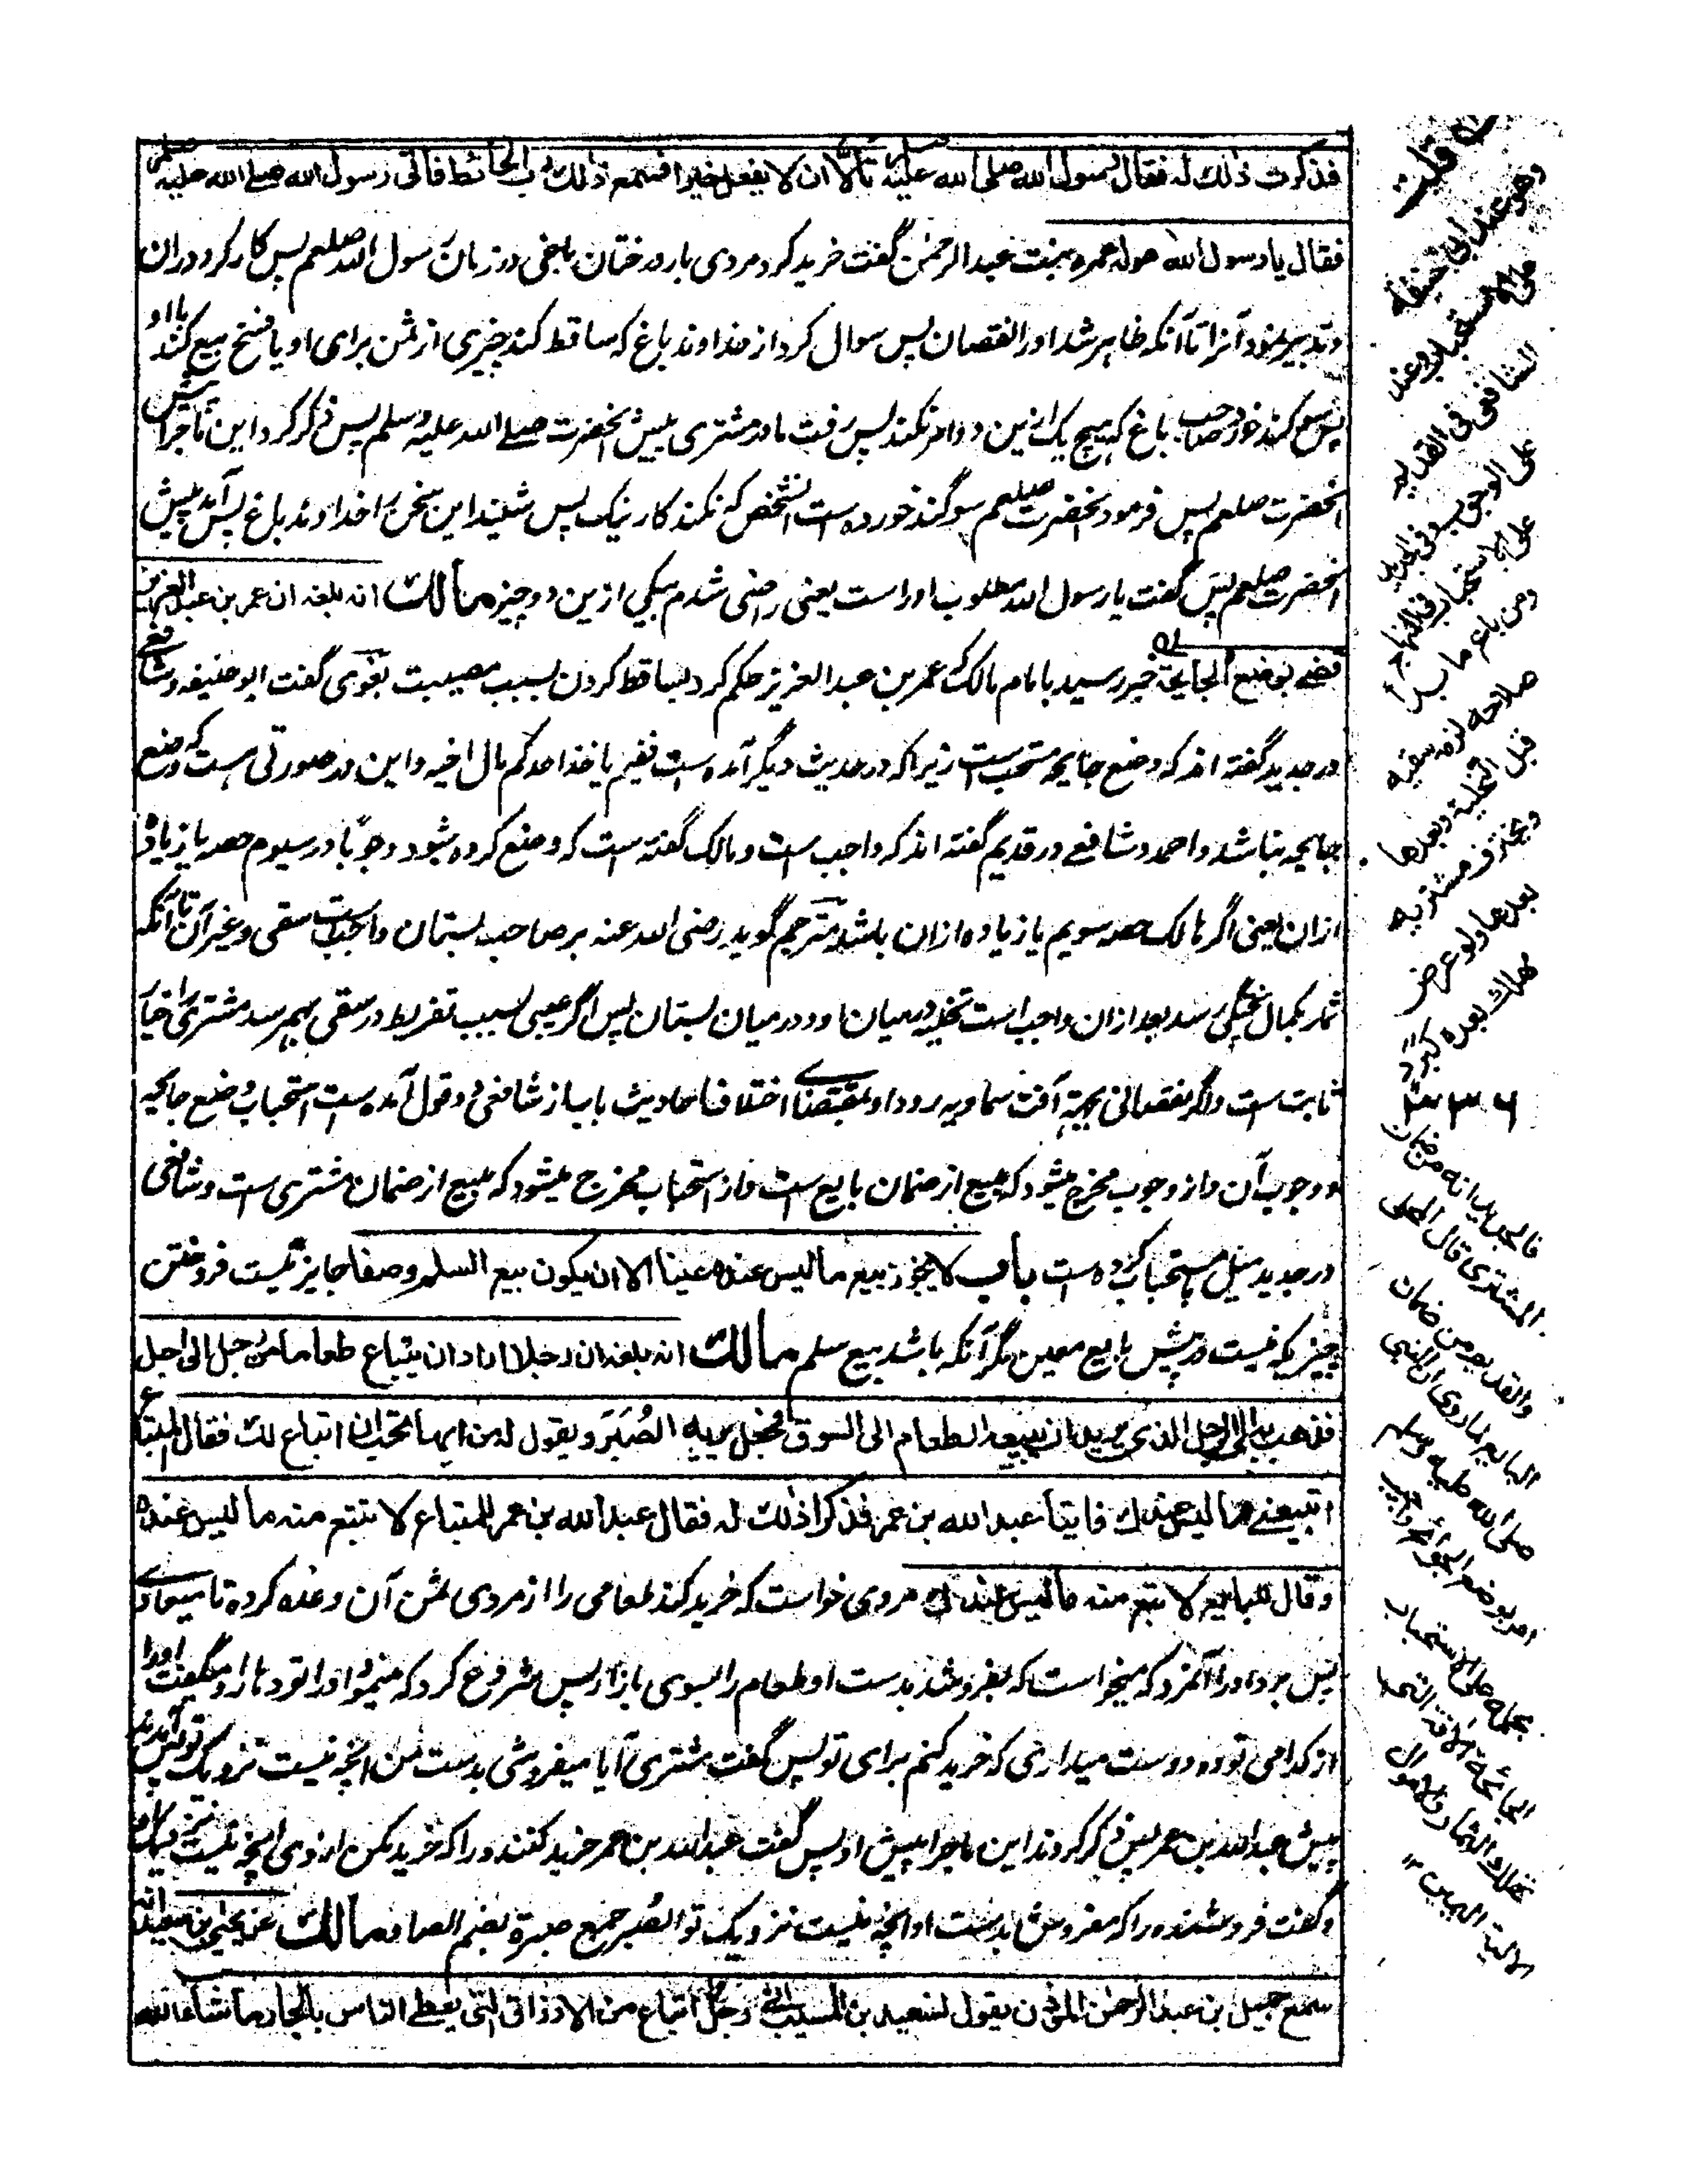 فذكرت ذلك له فقال رسول الله صلى الله عليه وسلم تألى ان لا يفعل خيرا فسمع ذلك رب الحائط فاتى رسول الله صلے الله عليه وسلم
فقال يا رسول الله هو له عمره بنت عبد الرحمن گفت خرید کرد مردی بار درختان باغی در زمان رسول الله صلعم پس کار کرد دران
و تدبیر نمود آنرا تا آنکه ظاهر شد اورا نقصان پس سوال کرد از خداوند باغ که ساقط کند چیزی از ثمن برای او یا فسخ بیع کند با او
پس سوگند خورد صاحب باغ که هیچ یک ازین دو امر نکند پس رفت مادر مشتری پیش آنحضرت صلے الله علیه وسلم پس ذکر کرد این ماجرا پیش
آنحضرت صلعم پس فرمود آنحضرت صلعم سوگند خورده است آن شخص که نکند کار نیک پس شنید این سخن را خداوند باغ پس آمد پیش
آنحضرت صلعم پس گفت یا رسول الله مطلوب او راست یعنی راضی شدم بیکی ازین دو چیز مالك انه بلغه ان عمر بن عبد العزيز
قضے بوضع الجايحة خبر رسید با امام مالک که عمر بن عبد العزیز حکم کرد بساقط کردن بسبب مصیبت بغوی گفت ابو حنیفه و شافعے
در جدید گفته اند که وضع جایحه مستحب است زیرا که در حدیث دیگر آمده است ففیم یاخذ احدکم مال اخیه و این در صورتی است که وضع
جایحه نباشد و احمد و شافعے در قدیم گفته اند که واجب است و مالک گفته است که وضع کرده شود وجوبا در سیوم حصه یا زیاده
ازان یعنی اگر هالک حصه سویم یا زیاده ازان باشد مترجم گوید رضی الله عنه بر صاحب بستان واجب است سقی و غیر آن تا آنکه
ثمار بکمال پختگی رسد بعد ازان واجب است تخلیه درمیان او و درمیان بستان پس اگر عیبی بسبب تفریط در سقی بهم رسد مشتری را خیار
ثابت است و اگر نقصانی بجهة آفت سماویه رو داد بمقتضاے اختلاف احادیث باب از شافعی دو قول آمده است استحباب وضع جایحه
و وجوب آن و از وجوب مخرج میشود که مبیع از ضمان بایع است و از استحباب مخرج میشود که مبیع از ضمان مشتری است و شافعی
در جدید میل باستحباب کرده است باب لا يجوز بيع ما ليس عنده عينا الا ان يكون بيع السلم وصفا جایز نیست فروختن
چیزیکه نیست در پیش بایع معین مگر آنکه باشد بیع سلم مالك انه بلغه ان رجلا اراد ان يبتاع طعاما من رجل الى اجل
فذهب به الرجل الذى يريد ان يبيعه الطعام الى السوق فجعل يريه الصُبَرَ ويقول له من ايها تحب ان ابتاع لك فقال المبتاع
اتبيعنے ما ليس عندك فاتيا عبد الله بن عمر فذكرا ذلك له فقال عبد الله بن عمر للمبتاع لا تبتع منه ما ليس عنده
وقال للبايع لا تبع منه ما ليس عندك مردی خواست که خرید کند طعامی را از مردی ثمن آن وعده کرده تا میعادے
پس برد او را آنمرد که میخواست که بفروشد بدست او طعام را بسوی بازار پس شروع کرد که مینمود او را تودها را و میگفت او را
از کدامی توده دوست میداری که خرید کنم برای تو پس گفت مشتری آیا میفروشی بدست من آنچه نیست نزدیک تو پس آمدند
پیش عبد الله بن عمر پس ذکر کردند این ماجرا پیش او پس گفت عبد الله بن عمر خرید کننده را که خرید مکن از وی آنچه نیست نزدیک او
و گفت فروشنده را که مفروش بدست او آنچه نیست نزدیک تو الصُبر جمع صبرة بضم الصاد مالك عن يحيى بن سعيد انه
سمع جميل بن عبد الرحمن المؤذن يقول لسعيد بن المسيب انى رجل ابتاع من الارزاق التى يعطے الناس بالجار ما شاء الله
قلت
وهو عند ابى حنيفة
على الاستحباب وعند
الشافعى فى القديم
على الوجوب وفى الجديد
على الاستحباب فى المنهاج
ومن باع ما بدا
صلاحه لزمه سقيه
قبل التخلية وبعدها
ويتصرف مشتريه
بعدها ولو عرض
مهلك بعده كبرد
فالجديد انه من ضمان
المشترى قال المحلى
والقديم من ضمان
البايع لما روى ان النبى
صلى الله عليه وسلم
امر بوضع الجوائح واجيب
بحمله على الاستحباب
الجائحة الآفة التى
تهلك الثمار والاموال